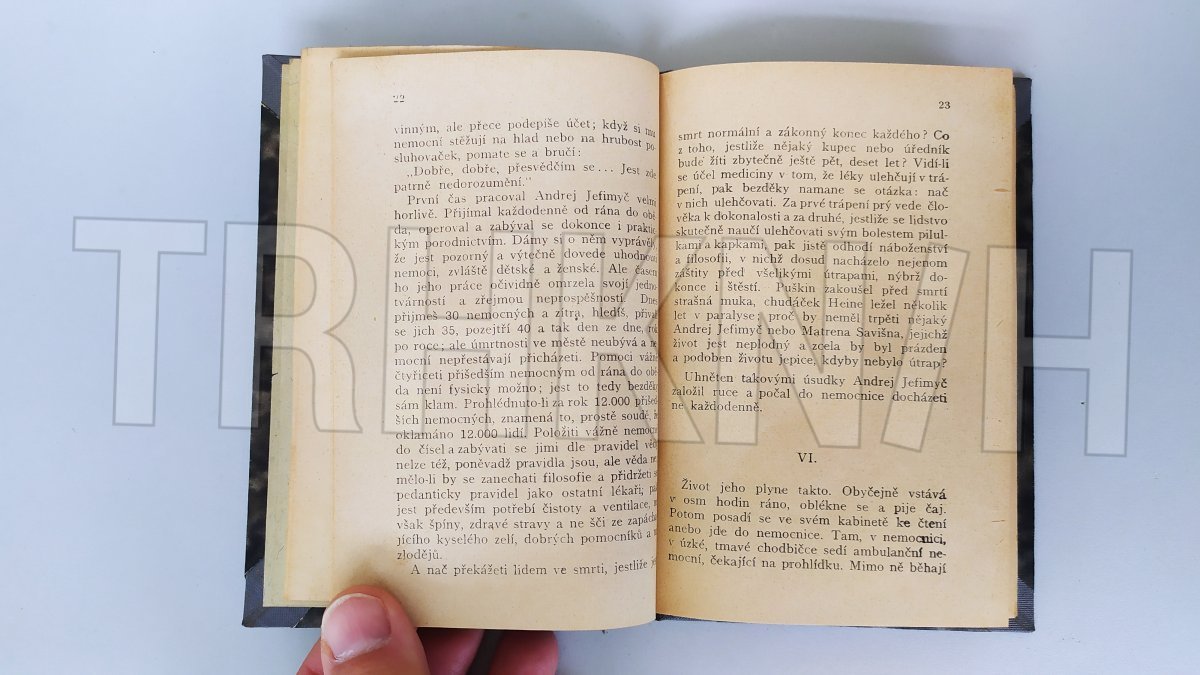 22
vinným, ale přece podepíše účet; když si mu
nemocní stěžují na hlad nebo na hrubost po-
sluhovaček, pomate se a bručí:
„Dobře, dobře, přesvědčím se... Jest zde
patrně nedorozumění.“
První čas pracoval Andrej Jefimyč velmi
horlivě. Přijímal každodenně od rána do obě-
da, operoval a zabýval se dokonce i praktic-
kým porodnictvím. Dámy si o něm vyprávěly,
že jest pozorný a výtečně dovede uhodnouti
nemoci, zvláště dětské a ženské. Ale časem
ho jeho práce očividně omrzela svojí jedno-
tvárností a zřejmou neprospěšností. Dnes
přijmeš 30 nemocných a zítra, hledíš,
se jich 35, pozejtří 40 a tak den ze dne, rok
po roce; ale úmrtnosti ve městě neubývá a ne-
mocní nepřestávají přicházeti. Pomoci vážně
čtyřiceti přišedším nemocným od rána do obě-
da není fysicky možno; jest to tedy bezděky
sám klam. Prohlédnuto-li za rok 12.000 přišed-
ších nemocných, znamená to, prostě soudě, že
oklamáno 12.000 lidí. Položiti vážně nemocné
do čísel a zabývati se jimi dle pravidel vědy
nelze též, poněvadž pravidla jsou, ale věda ne
mělo-li by se zanechati filosofie a přidržeti se
pedanticky pravidel jako ostatní lékaři, pak
jest především potřebí čistoty a ventilace, ne
však špíny, zdravé stravy a ne šči ze zapácha-
jícího kyselého zelí, dobrých pomocníků a ne
zlodějů.
A nač překážeti lidem ve smrti, jestliže je
23
smrt normální a zákonný konec každého? Co
z toho, jestliže nějaký kupec nebo úředník
bude žíti zbytečně ještě pět, deset let? Vidí-li
se účel mediciny v tom, že léky ulehčují v trá-
pení, pak bezděky namane se otázka: nač
v nich ulehčovati. Za prvé trápení prý vede člo-
věka k dokonalosti a za druhé, jestliže se lidstvo
skutečně naučí ulehčovati svým bolestem pilul-
kami a kapkami, pak jistě odhodí náboženství
a filosofii, v nichž dosud nacházelo nejenom
záštity před všelikými útrapami, nýbrž do-
konce i štěstí. Puškin zakoušel před smrtí
strašná muka, chudáček Heine ležel několik
let v paralyse; proč by neměl trpěti nějaký
Andrej Jefimyč nebo Matrena Savišna, jejichž
život jest neplodný a zcela by byl prázden
a podoben životu jepice, kdyby nebylo útrap?
Uhněten takovými úsudky Andrej Jefimyč
založil ruce a počal do nemocnice docházeti
ne každodenně.
VI.
Život jeho plyne takto. Obyčejně vstává
v osm hodin ráno, oblékne se a pije čaj.
Potom posadí se ve svém kabinetě ke čtení
anebo jde do nemocnice. Tam, v nemocnici,
v úzké, tmavé chodbičce sedí ambulanční ne-
mocní, čekající na prohlídku. Mimo ně běhají